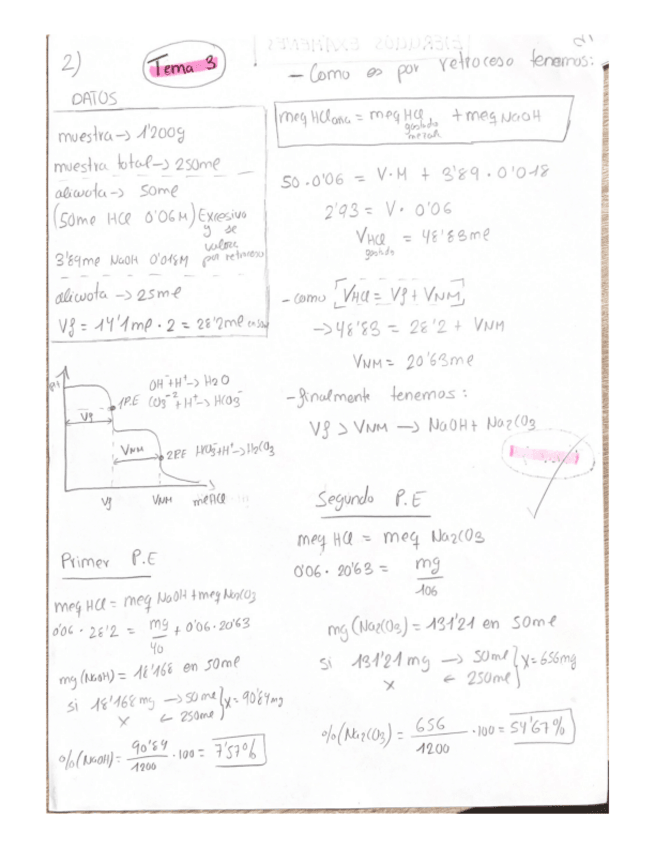 2)
Tema 3
DATOS
muestra -> 1'200g
muestra total -> 250ml
alicuota -> 50ml
(50ml HCl 0'06M) Excesivo
y se
valora
por retroceso
3'89ml NaOH 0'018M
alicuota -> 25ml
Vf = 14'1ml · 2 = 28'2ml
OH⁻+H⁺ -> H2O
1P.E CO3⁻²+H⁺ -> HCO3⁻
Vf
VNM
2PE HCO3⁻+H⁺ -> H2CO3
Vf VNM mlHCl
Primer P.E
meq HCl = meq NaOH + meq Na2CO3
0'06 · 28'2 = mg/40 + 0'06 · 20'63
mg (NaOH) = 18'168 en 50ml
si 18'168 mg -> 50ml } X = 90'84mg
x <- 250ml
%(NaOH) = 90'84/1200 · 100 = 7'57%
- Como es por retroceso tenemos:
meq HCl = meq HCl + meq NaOH
gastado
50 · 0'06 = V · M + 3'89 · 0'018
2'93 = V · 0'06
VHCl = 48'83ml
gastado
- como [VHCl = Vf + VNM]
-> 48'83 = 28'2 + VNM
VNM = 20'63ml
- finalmente tenemos:
Vf > VNM -> NaOH + Na2CO3
Segundo P.E
meq HCl = meq Na2CO3
0'06 · 20'63 = mg/106
mg (Na2CO3) = 131'21 en 50ml
si 131'21 mg -> 50ml } X = 656mg
x <- 250ml
%(Na2CO3) = 656/1200 · 100 = 54'67%